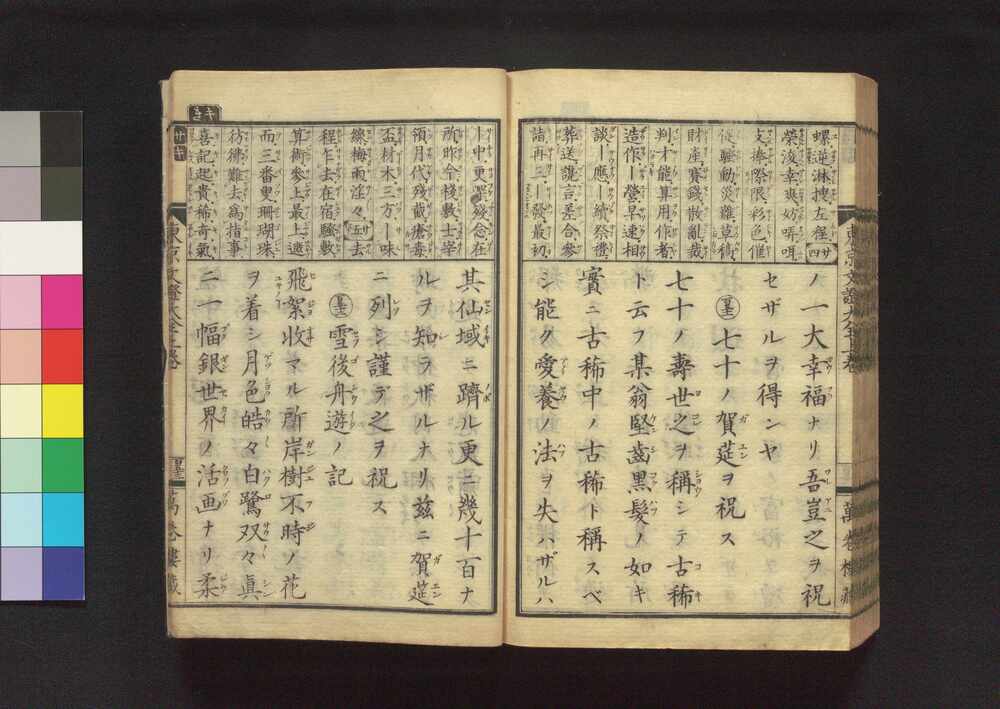 螺逆淋捜左徑
榮浚幸爽妨哢咀
支捧際限彩色催
従騒動災難草稿
財産賽錢散亂裁
判才能算用作者
造作ー營早速相
談ー應ー續祭禮
葬送讒言差合參
詣再三ー發最初
ノ一大幸福ナリ吾豈之ヲ祝
セザルヲ得ンヤ
七十ノ賀莚ヲ祝ス
七十ノ壽世之ヲ稱シテ古稀
ト云フ某翁堅齒黒髮ノ如キ
實ニ古稀中ノ古稀ト稱スベ
シ能ク愛養ノ法ヲ失ハザルハ
東京文證大全
萬巻樓藏
ー中更罪殘念在
所昨今棧敷士宰
領月代残截瘡毒
盃材木三方ー味
線梅雨淫々五去
程乍去在宿騒數
算術參上最上遮
而三番叟珊瑚珠
彷彿難去為指事
喜記起貴稀奇氣
其仙域ニ躋ル更ニ幾十百ナ
ルヲ知ラザルナリ茲ニ賀莚
ニ列シ謹デ之ヲ祝ス
雪後舟遊ノ記
飛絮收マル所岸樹不時ノ花
ヲ着シ月色皓々白鷺双々真
ニ一幅銀世界ノ活画ナリ柔
東京文證大全
萬巻樓藏